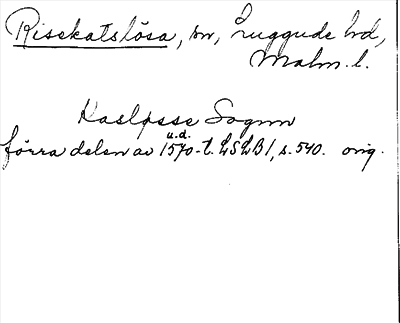 Risekatslösa, sn, Luggude hd,
Malm. l.
Kaslosse Sognn
u. d.
förra delen av 1570-t. LSLB1, s. 540. orig.